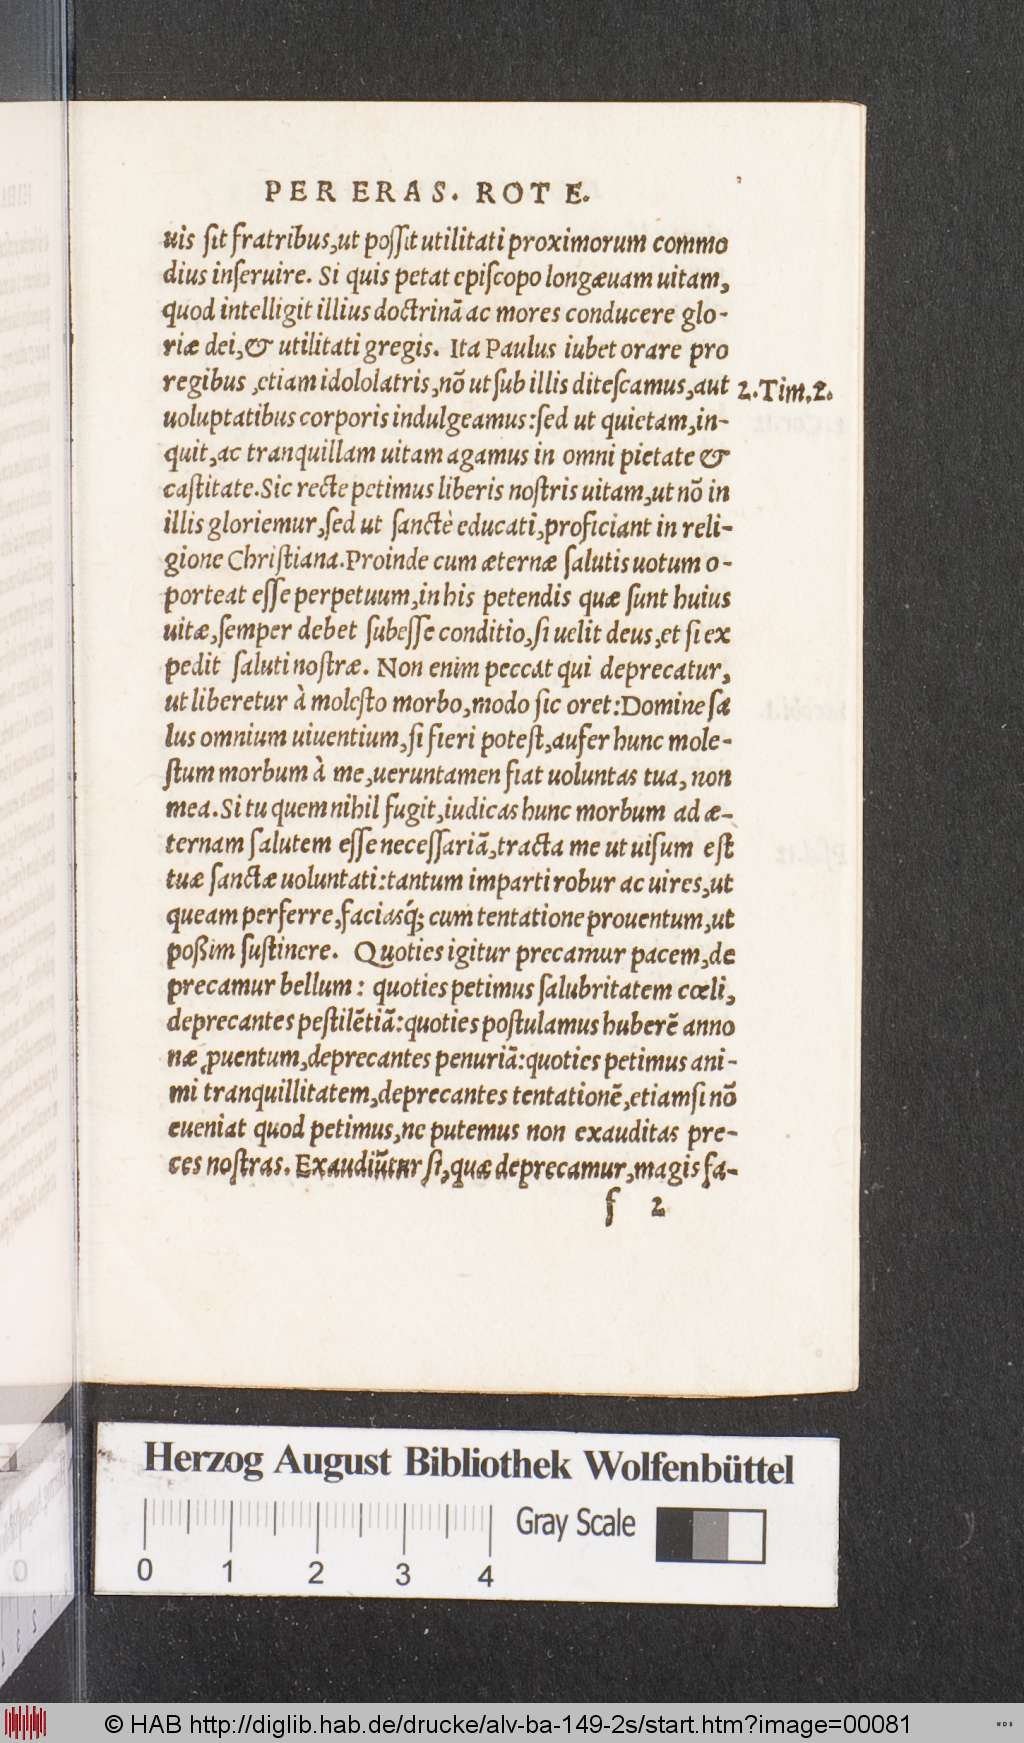 PER ERAS. ROTE.
uis ſit fratribus,ut poſſit utilitati proximorum commo
dius inſeruire. Si quis petat epiſcopo longæuam uitam,
quod intelligit illius doctrinā ac mores conducere glo-
riæ dei,& utilitati gregis. Ita Paulus iubet orare pro
regibus ,etiam idololatris,nō ut ſub illis diteſcamus,aut
2.Tim.2.
uoluptatibus corporis indulgeamus:ſed ut quietam,in-
quit,ac tranquillam uitam agamus in omni pietate &
caſtitate.Sic recte petimus liberis noſtris uitam,ut nō in
illis gloriemur,ſed ut ſanctè educati,proficiant in reli-
gione Chriſtiana.Proinde cum æternæ ſalutis uotum o-
porteat eſſe perpetuum,in his petendis quæ ſunt huius
uitæ,ſemper debet ſubeſſe conditio,ſi uelit deus,et ſi ex
pedit ſaluti noſtræ. Non enim peccat qui deprecatur,
ut liberetur à moleſto morbo,modo ſic oret:Domine ſa
lus omnium uiuentium,ſi fieri poteſt,aufer hunc mole-
ſtum morbum à me,ueruntamen fiat uoluntas tua, non
mea.Si tu quem nihil fugit,iudicas hunc morbum ad æ-
ternam ſalutem eſſe neceſſariā,tracta me ut uiſum eſt
tuæ ſanctæ uoluntati:tantum imparti robur ac uires,ut
queam perferre,faciasq́; cum tentatione prouentum,ut
poßim ſuſtinere. Quoties igitur precamur pacem,de
precamur bellum : quoties petimus ſalubritatem cœli,
deprecantes peſtilētiā:quoties poſtulamus huberē anno
næ ꝓuentum,deprecantes penuriā:quoties petimus ani-
mi tranquillitatem,deprecantes tentationē,etiamſi nō
eueniat quod petimus,ne putemus non exauditas pre-
ces noſtras. Exaudiūtur ſi,quæ deprecamur,magis fa-
f 2
Herzog August Bibliothek Wolfenbüttel
Gray Scale
0 1 2 3 4
© HAB http://diglib.hab.de/drucke/alv-ba-149-2s/start.htm?image=00081